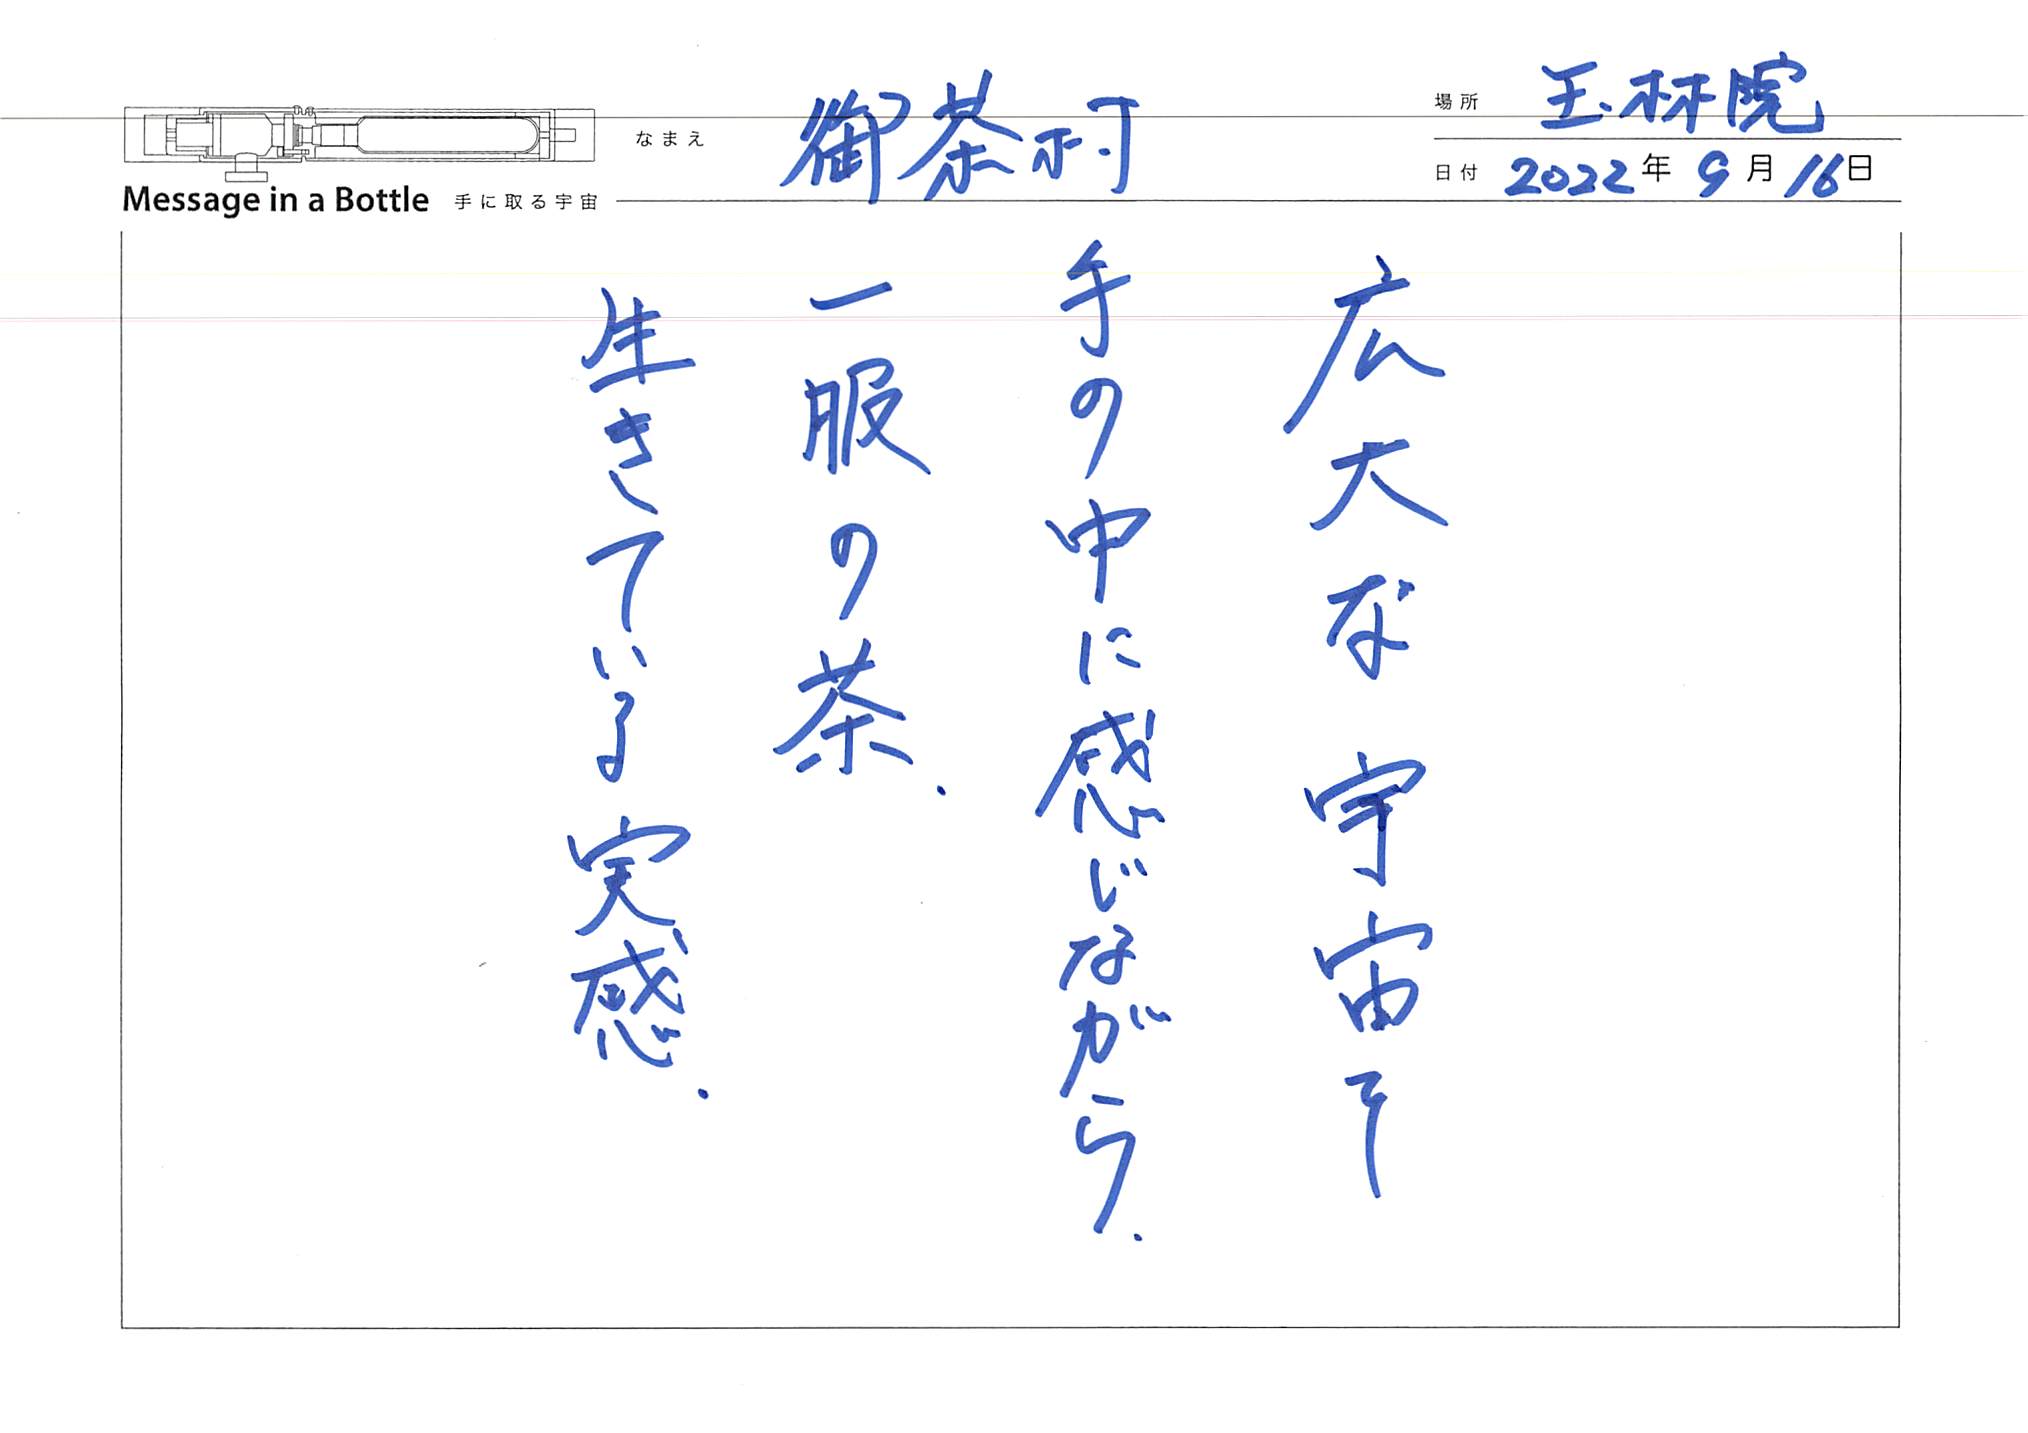 場所 玉林院
なまえ 御茶村
日付 2022年9月16日
Message in a Bottle 手に取る宇宙
広大な宇宙を
手の中に感じながら.
一服の茶.
生きている実感.